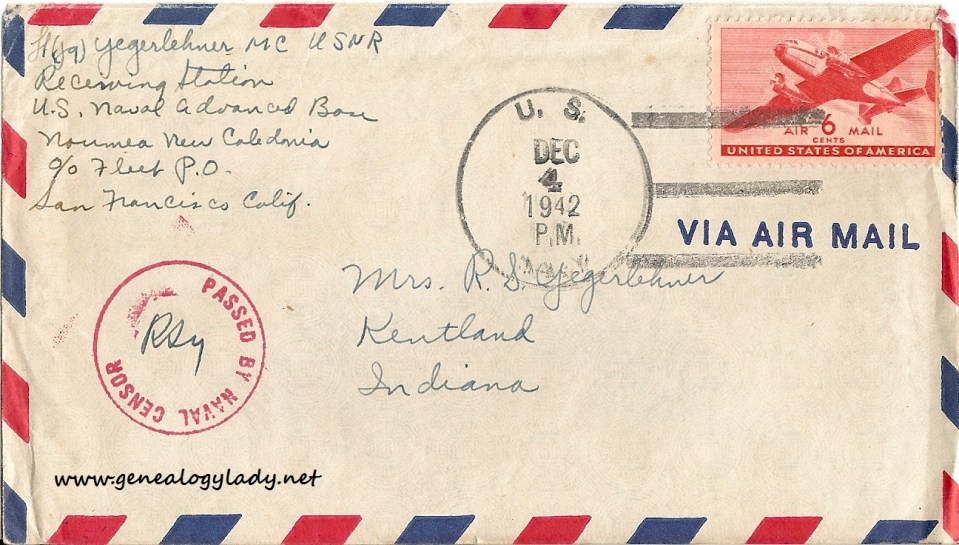 Lt(jg) Yegerlehner MC USNR
Receiving Station
U.S. Naval Advanced Base
Noumea New Caledonia
c/o Fleet P.O.
San Francisco Calif.
U. S.
DEC
4
1942
P.M.
AIR 6 MAIL
CENTS
UNITED STATES OF AMERICA
VIA AIR MAIL
Mrs. R. S. Yegerlehner
Kentland
Indiana
PASSED BY NAVAL CENSOR
RSY
www.genealogylady.net